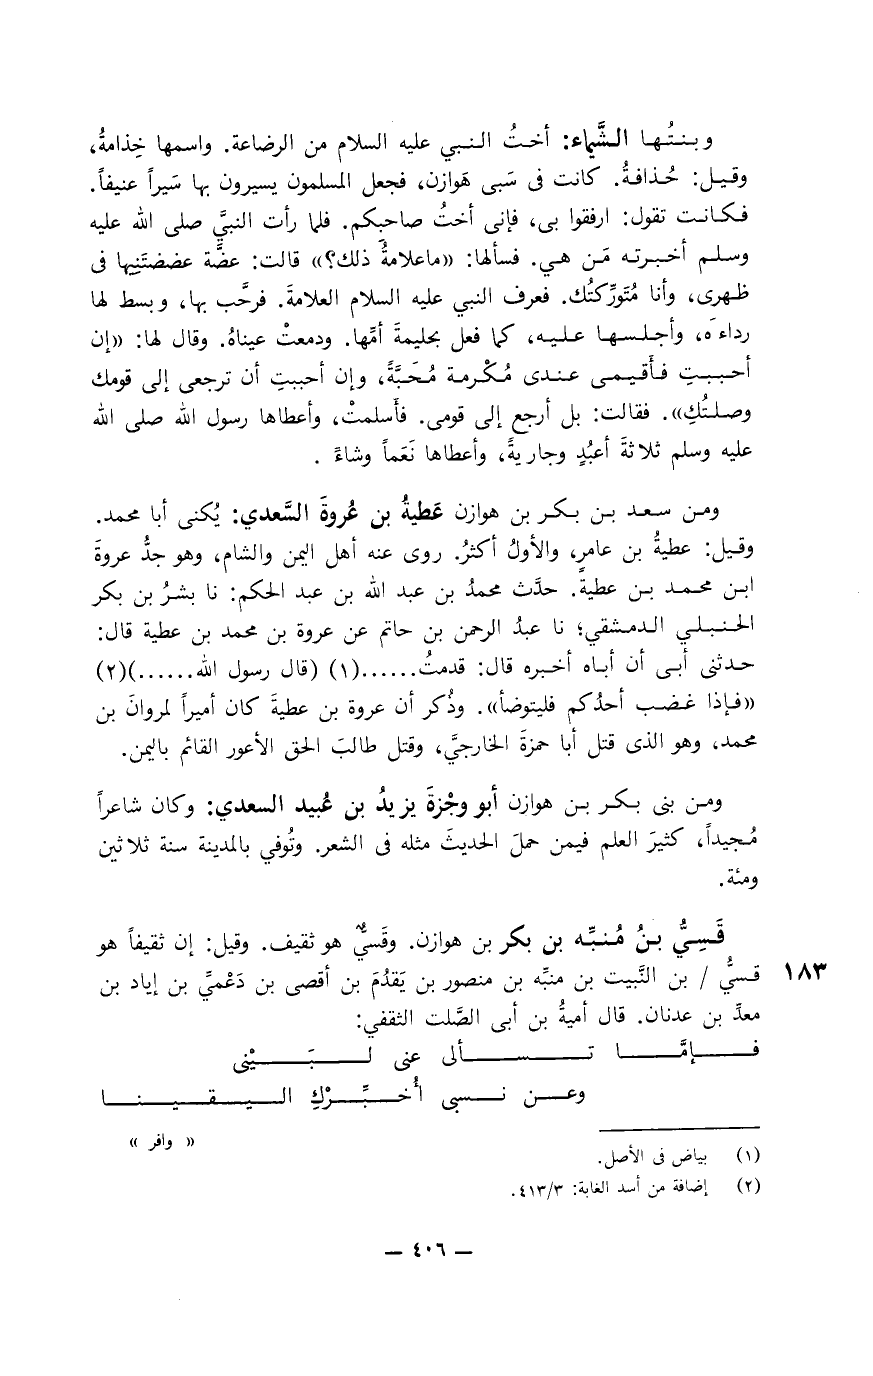 وبنتُها الشَّيماء: أختُ النبي عليه السلام من الرضاعة. واسمها خِذامةُ،
وقيل: حُذافةُ. كانت فى سَبى هَوازن، فجعل المسلمون يسيرون بها سَيراً عنيفاً.
فكانت تقول: ارفقوا بى، فإنى أختُ صاحبكم. فلما رأت النبيَّ صلى الله عليه
وسلم أخبرته مَن هي. فسألها: «ماعلامةُ ذلك؟» قالت: عضَّة عضضتَنِيها فى
ظهرى، وأنا مُتَورِّكتُك. فعرف النبي عليه السلام العلامةَ. فرحَّب بها، وبسط لها
رداءَه، وأجلسها عليه، كما فعل بحليمةَ أمِّها. ودمعتْ عيناهُ. وقال لها: «إن
أحببتِ فأقيمى عندى مُكْرمة مُحَبَّةً، وإن أحببتِ أن ترجعى إلى قومك
وصلتُكِ». فقالت: بل أرجع إلى قومى. فأسلمتْ، وأعطاها رسول الله صلى الله
عليه وسلم ثلاثةَ أعبُدٍ وجاريةً، وأعطاها نَعَماً وشاءً .
ومن سعد بن بكر بن هوازن عَطيةُ بن عُروةَ السَّعدي: يُكنى أبا محمد.
وقيل: عطيةُ بن عامرٍ، والأولُ أكثرُ. روى عنه أهل اليمن والشام، وهو جدُّ عروةَ
ابن محمد بن عطيةَ. حدَّث محمدُ بن عبد الله بن عبد الحكم: نا بشرُ بن بكر
الحنبلي الدمشقي؛ نا عبدُ الرحمن بن حاتم عن عروة بن محمد بن عطية قال:
حدثنى أبى أن أباه أخبره قال: قدمتُ......(١) (قال رسول الله......)(٢)
«فإذا غضب أحدُكم فليتوضأ». وذُكر أن عروة بن عطيةَ كان أميراً لمروانَ بن
محمد، وهو الذى قتل أبا حمزةَ الخارجيَّ، وقتل طالبَ الحق الأعور القائم باليمن.
ومن بنى بكر بن هوازن أبو وجْزةَ يزيدُ بن عُبيد السعدي: وكان شاعراً
مُجيداً، كثيرَ العلم فيمن حملَ الحديثَ مثله فى الشعر. وتُوفي بالمدينة سنة ثلاثين
ومئة.
قَسِيُّ بنُ مُنبِّه بن بكر بن هوازن. وقَسيٌّ هو ثقيف. وقيل: إن ثقيفاً هو
١٨٣ قسيُّ / بن النَّبيت بن منبِّه بن منصور بن يَقدُمَ بن أقصى بن دَعْميِّ بن إياد بن
معدِّ بن عدنان. قال أميةُ بن أبى الصَّلت الثقفي:
فإمَّا تسألى عنى لبَيْنى
وعن نسبى أُخبِّرْكِ اليقينا
« وافر »
(١) بياض فى الأصل.
(٢) إضافة من أسد الغابة: ٤١٣/٣.
— ٤٠٦ —